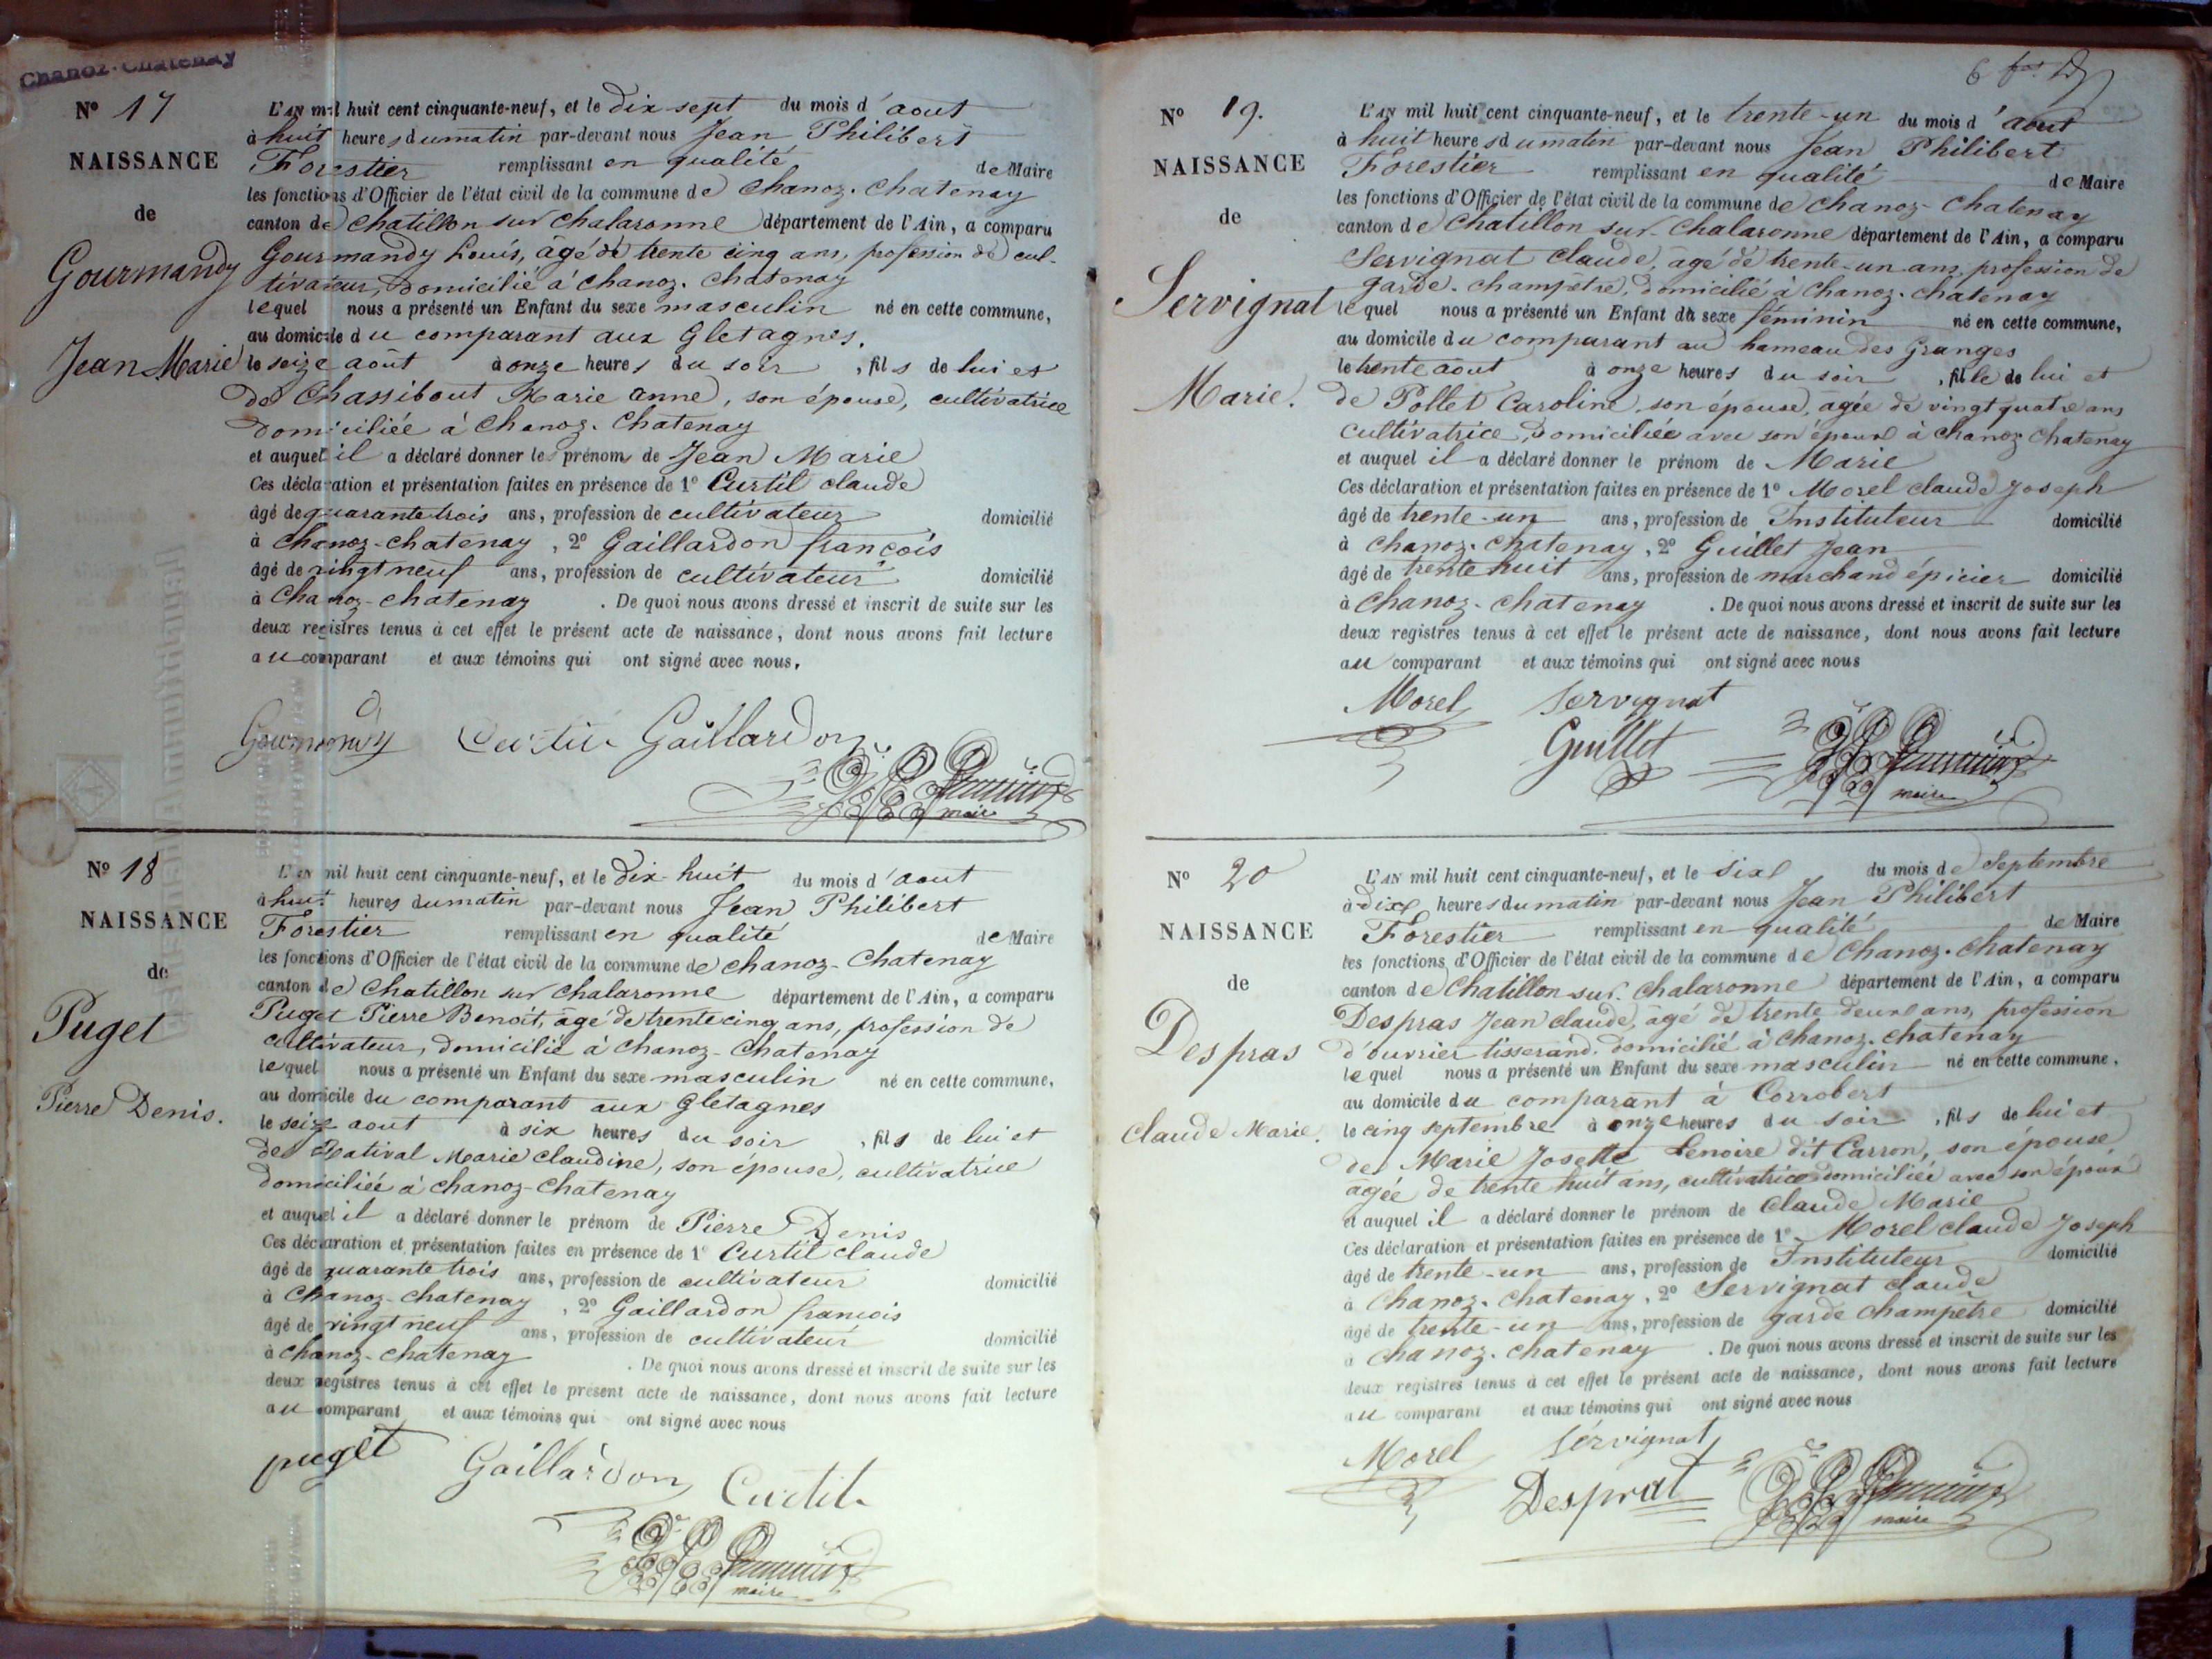 Chanoz-Chatenay
Nº 17
NAISSANCE
de
Gourmandy
Jean Marie
L'AN mil huit cent cinquante-neuf, et le dix sept du mois d'aout
à huit heures du matin par-devant nous Jean Philibert
Forestier remplissant en qualité de Maire
les fonctions d'Officier de l'état civil de la commune de Chanoz-Chatenay
canton de Chatillon sur Chalaronne département de l'Ain, a comparu
Gourmandy Louis, âgé de trente cinq ans, profession de cul-
tivateur, domicilié à Chanoz-Chatenay
lequel nous a présenté un Enfant du sexe masculin né en cette commune,
au domicile du comparant aux Gletagnes.
le seize août à onze heures du soir, fils de lui et
de Chassibout Marie anne, son épouse, cultivatrice
domiciliée à Chanoz-Chatenay
et auquel il a déclaré donner les prénoms de Jean Marie
Ces déclaration et présentation faites en présence de 1º Curtil claude
âgé de quarante trois ans, profession de cultivateur domicilié
à Chanoz-chatenay, 2º Gaillardon françois
âgé de vingt neuf ans, profession de cultivateur domicilié
à Chanoz-chatenay. De quoi nous avons dressé et inscrit de suite sur les
deux registres tenus à cet effet le présent acte de naissance, dont nous avons fait lecture
au comparant et aux témoins qui ont signé avec nous.
Gourmandy Curtil Gaillardon
maire
Nº 18
NAISSANCE
de
Puget
Pierre Denis.
L'AN mil huit cent cinquante-neuf, et le dix-huit du mois d'aout
à huit heures du matin par-devant nous Jean Philibert
Forestier remplissant en qualité de Maire
les fonctions d'Officier de l'état civil de la commune de Chanoz-Chatenay
canton de Chatillon sur Chalaronne département de l'Ain, a comparu
Puget Pierre Benoit, âgé de trente cinq ans, profession de
cultivateur, domicilié à Chanoz-Chatenay
lequel nous a présenté un Enfant du sexe masculin né en cette commune,
au domicile du comparant aux Gletagnes
le seize aout à six heures du soir, fils de lui et
de Marie Claudine, son épouse, cultivatrice
domiciliée à Chanoz-Chatenay
et auquel il a déclaré donner le prénom de Pierre Denis
Ces déclaration et présentation faites en présence de 1º Curtil claude
âgé de quarante trois ans, profession de cultivateur domicilié
à Chanoz-Chatenay, 2º Gaillardon francois
âgé de vingt neuf ans, profession de cultivateur domicilié
à Chanoz-Chatenay. De quoi nous avons dressé et inscrit de suite sur les
deux registres tenus à cet effet le présent acte de naissance, dont nous avons fait lecture
au comparant et aux témoins qui ont signé avec nous
puget Gaillardon Curtil
maire
6
Nº 19.
NAISSANCE
de
Servignat
Marie.
L'AN mil huit cent cinquante-neuf, et le trente-un du mois d'aout
à huit heures du matin par-devant nous Jean Philibert
Forestier remplissant en qualité de Maire
les fonctions d'Officier de l'état civil de la commune de Chanoz-Chatenay
canton de Chatillon sur Chalaronne département de l'Ain, a comparu
Servignat Claude, âgé de trente-un ans, profession de
garde-champêtre, domicilié à Chanoz-chatenay
lequel nous a présenté un Enfant du sexe féminin né en cette commune,
au domicile du comparant au hameau des Granges
le trente aout à onze heures du soir, fille de lui et
de Pollet Caroline, son épouse, agée de vingt quatre ans
cultivatrice, domiciliée avec son époux à Chanoz Chatenay
et auquel il a déclaré donner le prénom de Marie
Ces déclaration et présentation faites en présence de 1º Morel Claude Joseph
âgé de trente-un ans, profession de Instituteur domicilié
à Chanoz-Chatenay, 2º Guillet Jean
âgé de trente huit ans, profession de marchand épicier domicilié
à Chanoz-Chatenay. De quoi nous avons dressé et inscrit de suite sur les
deux registres tenus à cet effet le présent acte de naissance, dont nous avons fait lecture
au comparant et aux témoins qui ont signé avec nous
Morel Servignat
Guillet
maire
Nº 20
NAISSANCE
de
Despras
Claude Marie.
L'AN mil huit cent cinquante-neuf, et le six du mois de Septembre
à dix heures du matin par-devant nous Jean Philibert
Forestier remplissant en qualité de Maire
les fonctions d'Officier de l'état civil de la commune de Chanoz-Chatenay
canton de Chatillon sur Chalaronne département de l'Ain, a comparu
Despras Jean claude, agé de trente deux ans, profession
d'ouvrier tisserand. domicilié à Chanoz-chatenay
lequel nous a présenté un Enfant du sexe masculin né en cette commune,
au domicile du comparant à Corrobert
le cinq septembre à onze heures du soir, fils de lui et
de Marie Josette Lenoire dit Carron, son épouse
agée de trente huit ans, cultivatrice domiciliée avec son époux
et auquel il a déclaré donner le prénom de Claude Marie
Ces déclaration et présentation faites en présence de 1º Morel claude Joseph
âgé de trente-un ans, profession de Instituteur domicilié
à Chanoz-Chatenay, 2º Servignat claude
âgé de trente-un ans, profession de garde champêtre domicilié
à Chanoz-Chatenay. De quoi nous avons dressé et inscrit de suite sur les
deux registres tenus à cet effet le présent acte de naissance, dont nous avons fait lecture
au comparant et aux témoins qui ont signé avec nous
Morel Servignat
Desprat
maire